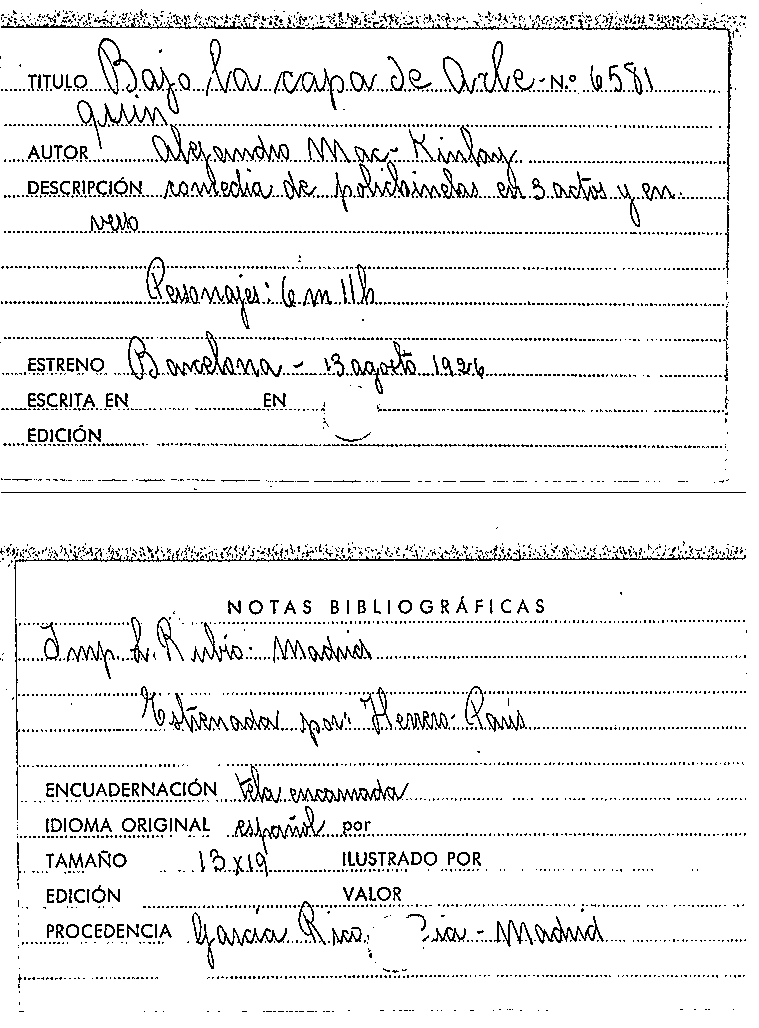 TITULO Bajo la capa de Arle- N.º 6581
quin
AUTOR Alejandro Mac-Kinlay
DESCRIPCIÓN comedia de polichinelas en 3 actos y en
verso
Personajes: 6 m 11 h
ESTRENO Barcelona - 13 agosto 1926
ESCRITA EN EN
EDICIÓN
NOTAS BIBLIOGRÁFICAS
Imp. L. Rubio - Madrid
Estrenada por: Herrero-
ENCUADERNACIÓN tela encarnada
IDIOMA ORIGINAL español por
TAMAÑO 13 x 19 ILUSTRADO POR
EDICIÓN VALOR
PROCEDENCIA García Rico, - Madrid